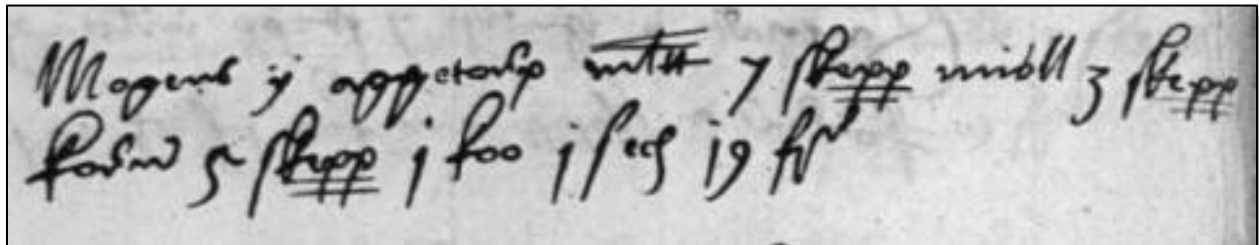 Mogens ij aggetorup mltt 7 skepp miöll 3 skepp
korn 5 skepp j koo j sech j9